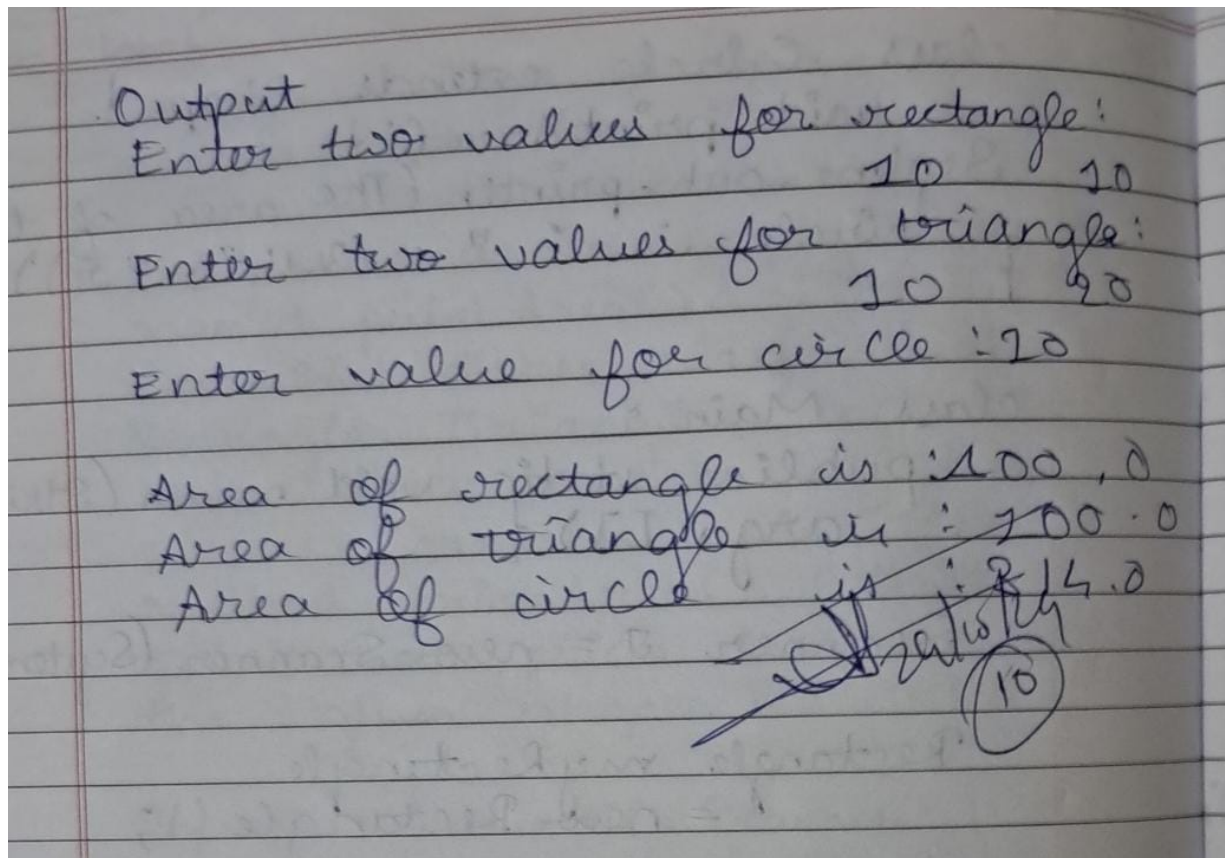 Output
Enter two values for rectangle:
10 10
Enter two values for triangle:
10 20
Enter value for circle : 10
Area of rectangle is : 100.0
Area of triangle is : 100.0
Area of circle is : 314.0
10